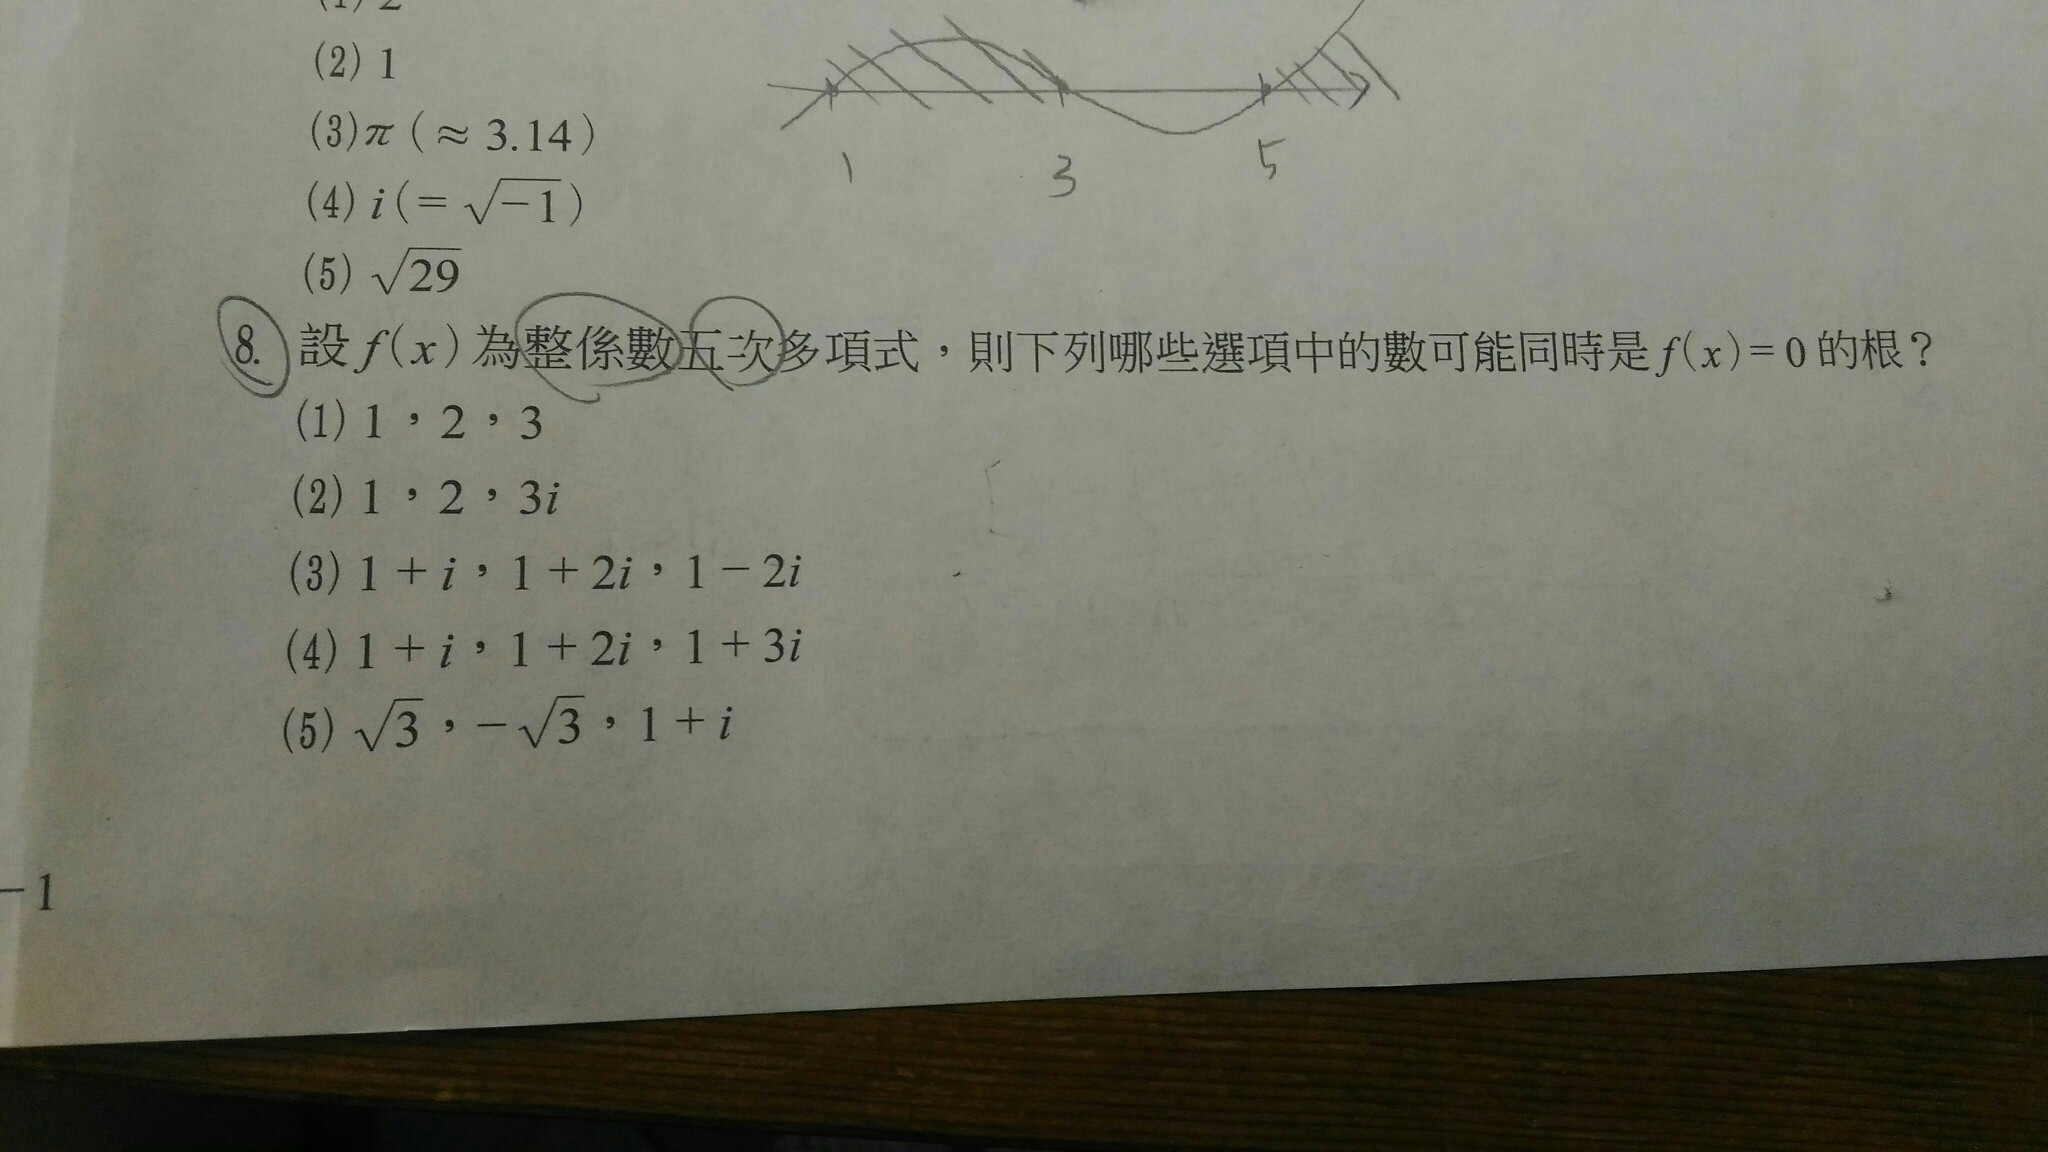 (1) 2
(2) 1
(3) π ( ≈ 3.14 )
(4) i ( = √−1 )
(5) √29
1 3 5
8. 設 f(x) 為整係數五次多項式，則下列哪些選項中的數可能同時是 f(x) = 0 的根？
(1) 1，2，3
(2) 1，2，3i
(3) 1 + i，1 + 2i，1 − 2i
(4) 1 + i，1 + 2i，1 + 3i
(5) √3，−√3，1 + i
− 1